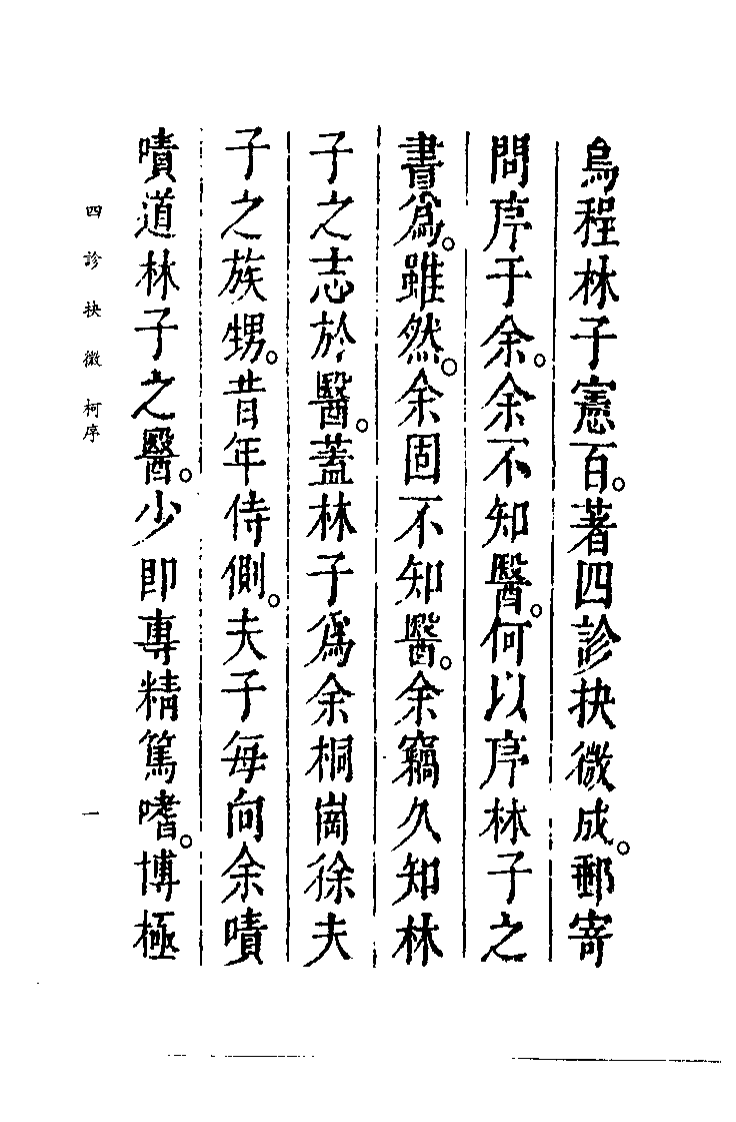 烏程林子憲百。著四診抉微成。郵寄
問序于余。余不知醫。何以序林子之
書爲。雖然。余固不知醫。余竊久知林
子之志於醫。蓋林子爲余桐崗徐夫
子之族甥。昔年侍側。夫子每向余嘖
嘖道林子之醫。少即專精篤嗜。博極
四診抉微 柯序
一